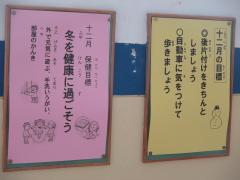 十二月の目標
◎後片付けをきちんと
しましょう
○自動車に気をつけて
歩きましょう
十二月 保健目標
冬を健康に過ごそう
外で元気に遊ぶ、手洗いうがい、
部屋のかんき